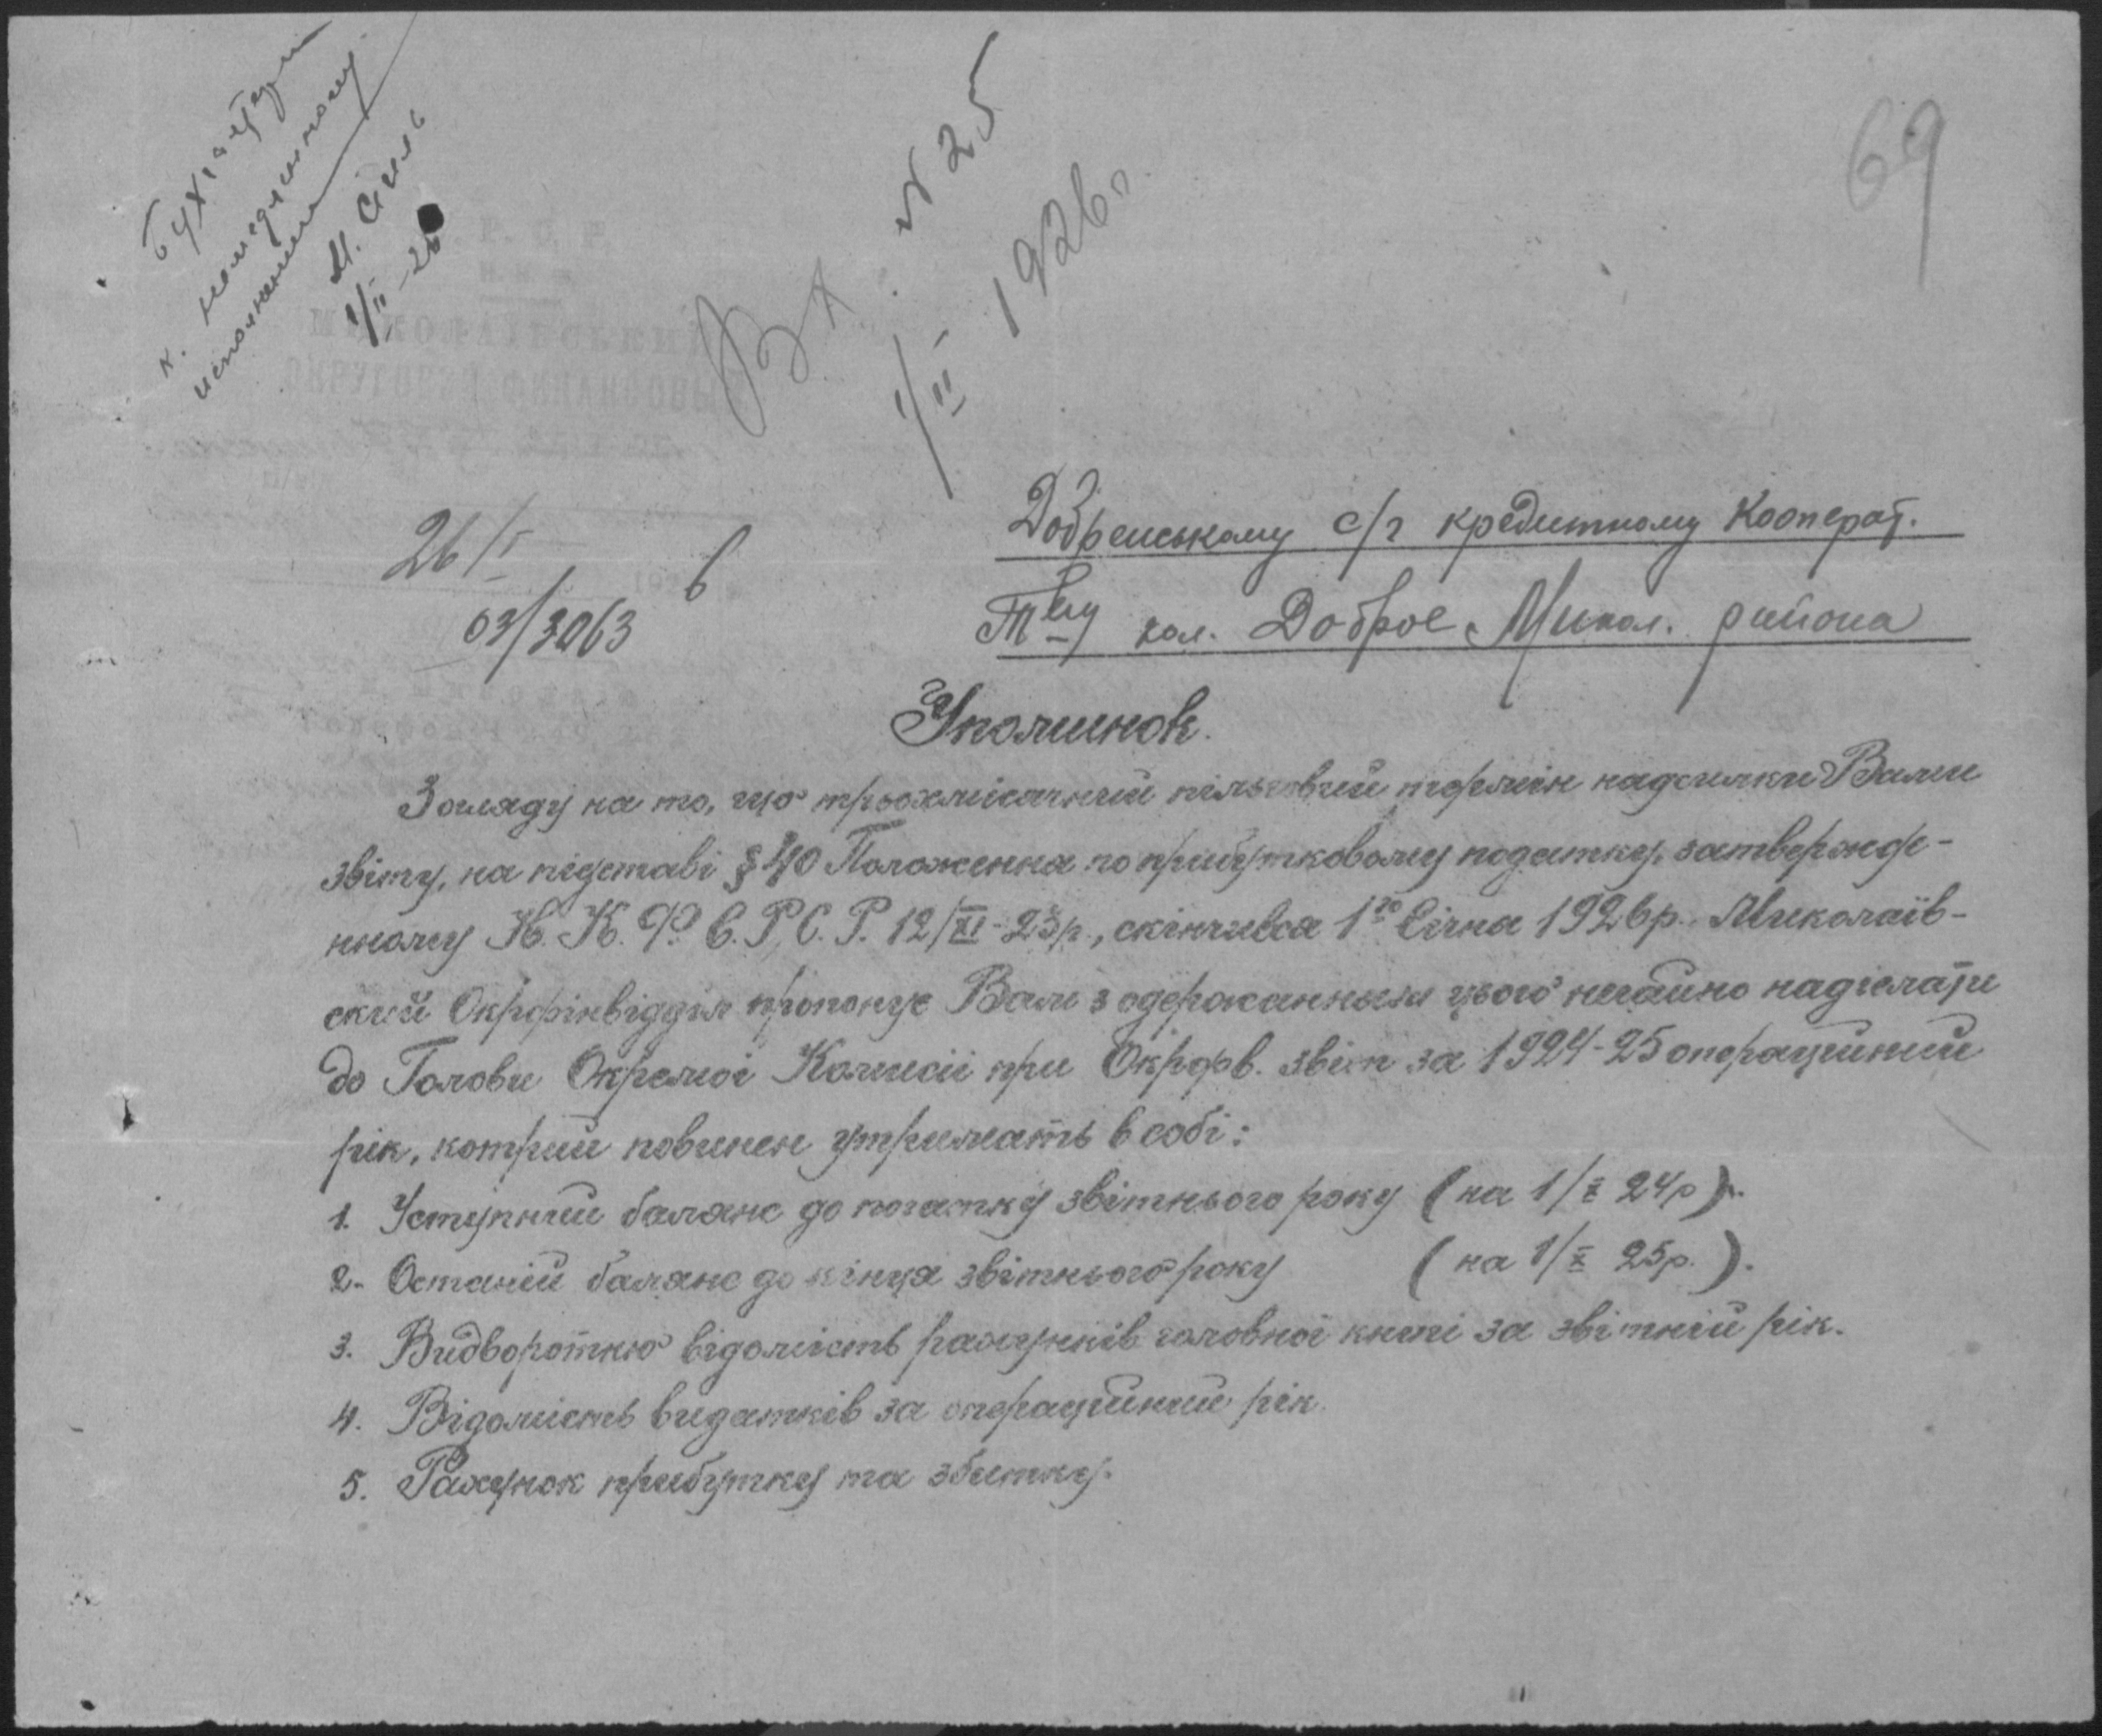 Бухгалтеру
к. немедленному
исполнению
1/II-26
69
Вх. № 25
1/II 1926 г.
26/I 6
03/3063
Добренському с/г кредитному Кооперат.
Тву кол. Доброе Микол. района
Упоминок.
З огляду на то, що трьохмісячний пільговий термін надсилки Вами
звіту, на підставі § 40 Положення по прибутковому податку, затвержде-
нному Н. К. Ф. С. Р. С. Р. 12/XI-23р., скінчився 1го Січня 1926р. Миколаїв-
ский Окрфінвідділ пропонує Вам з одержанням цього негайно надіслати
до Голови Окремої Комисії при Окрфв. звіт за 1924-25 операційний
рік, котрий повинен утримать в собі:
1. Уступний балянс до початку звітнього року (на 1/X 24р).
2. Останій балянс до кінця звітнього року (на 1/X 25р.).
3. відомість рахунків головної книги за звітній рік.
4. Відомість видатків за операційний рік.
5. Рахунок прибутку та збитку.